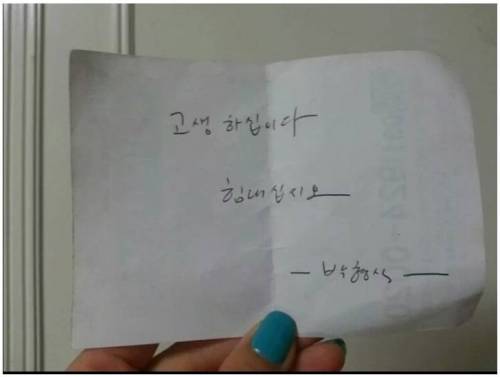 고생 하십이다
힘내십시오
— 박형식 —